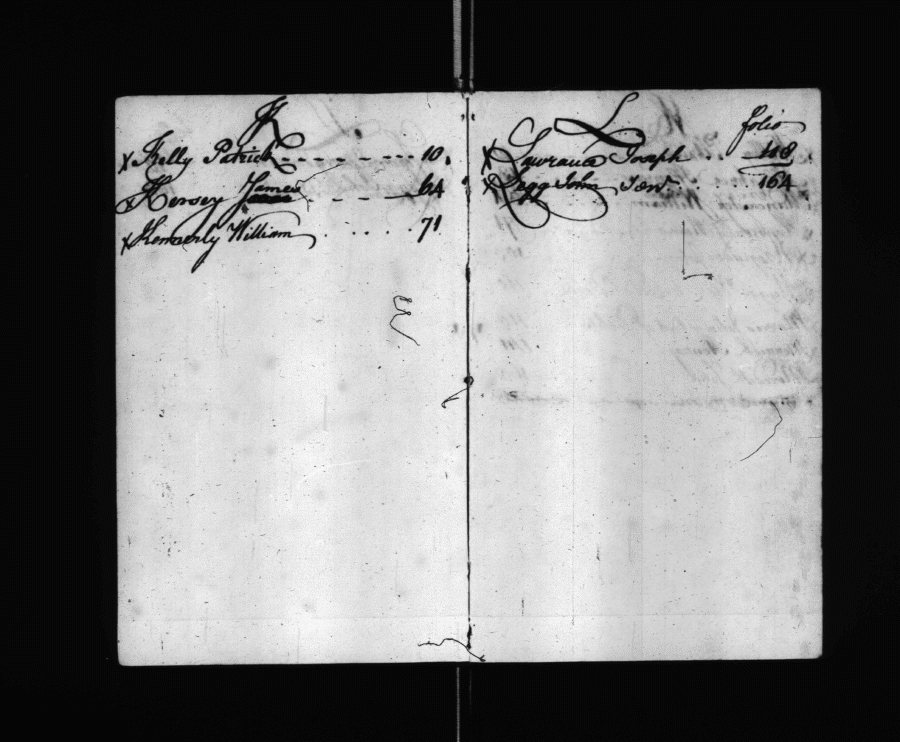 K
x Kelly Patrick - - - - - - - 10.
x Kersey James - - - 64
x Kemerly William . . . . . 71
L folio
x Lawrance Joseph . . . 118
x Legg John Senr . . . 164